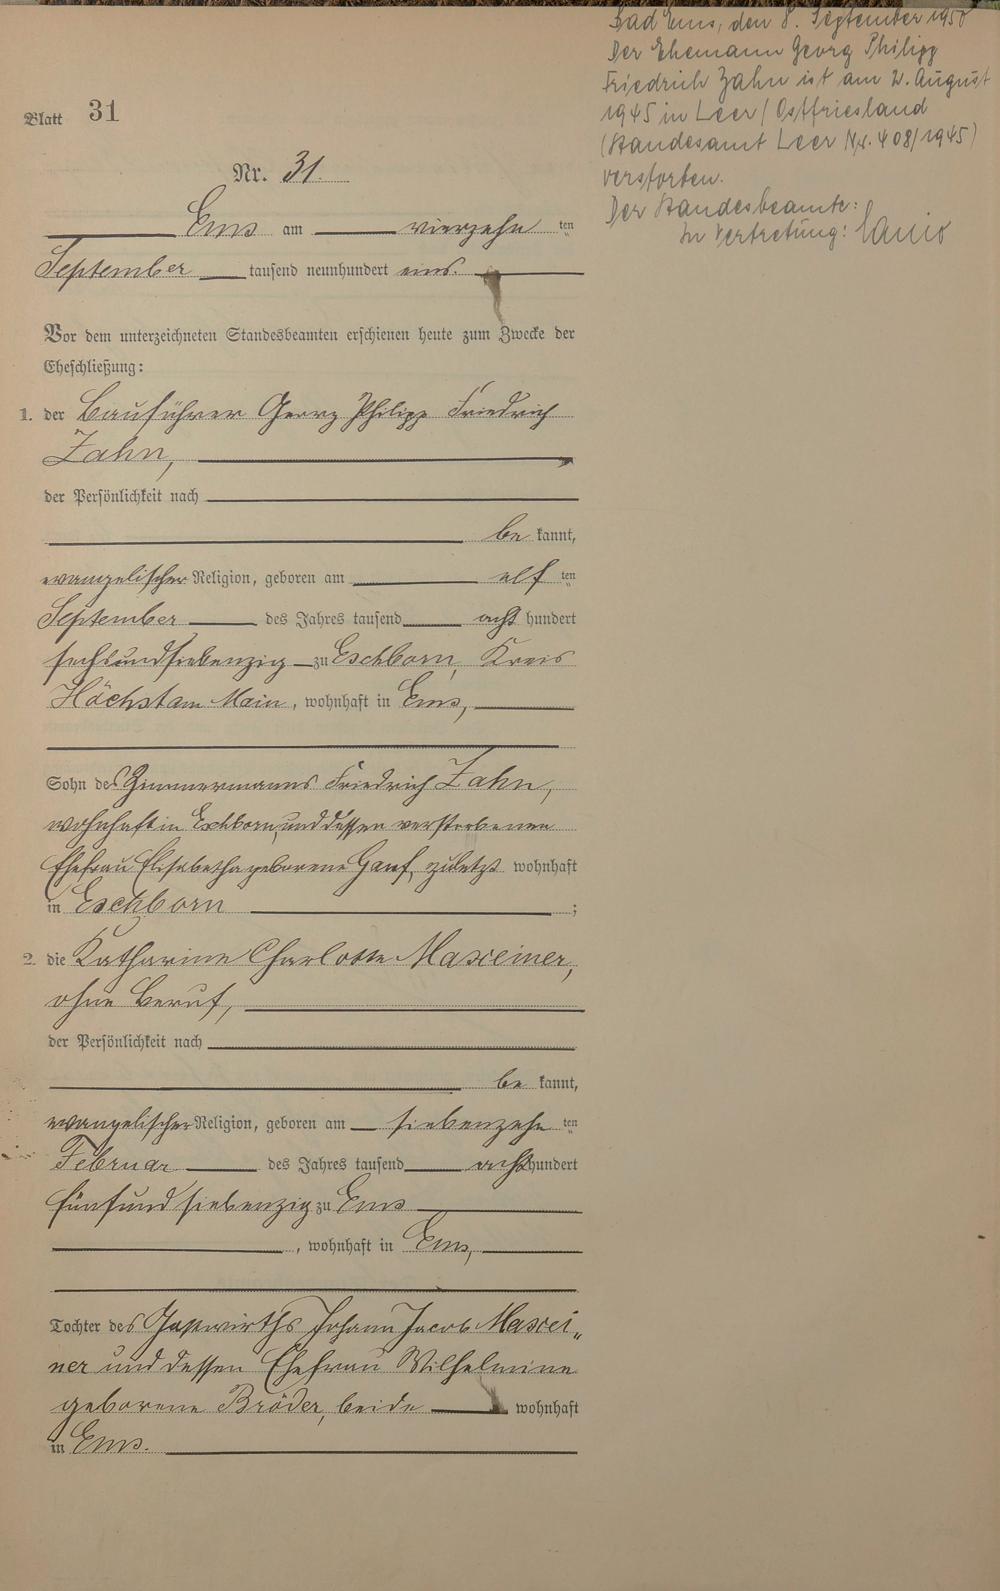 Blatt 31
Nr. 31.
Ems am vierzehn ten
September tausend neunhundert eins.
Vor dem unterzeichneten Standesbeamten erschienen heute zum Zwecke der
Eheschließung:
1. der Bauführer Georg Philipp Friedrich
Zahn,
der Persönlichkeit nach
be kannt,
evangelischer Religion, geboren am elf ten
September des Jahres tausend acht hundert
sechsundsiebenzig zu Eschborn, Kreis
Höchst am Main, wohnhaft in Ems,
Sohn des Zimmermanns Friedrich Zahn,
wohnhaft in Eschborn, und dessen verstorbenen
Ehefrau Elisabetha geborene zuletzt wohnhaft
in Eschborn ;
2. die Katharine Charlotte Maxeiner,
ohne Beruf,
der Persönlichkeit nach
be kannt,
evangelischer Religion, geboren am siebenzehn ten
Februar des Jahres tausend acht hundert
fünfundsiebenzig zu Ems
, wohnhaft in Ems,
Tochter des Gastwirths Johann Jacob Maxei„
ner und dessen Ehefrau Wilhelmine
geborene Bröder, beide wohnhaft
in Ems.
Bad Ems, den 8. September 1950
Der Ehemann Georg Philipp
Friedrich Zahn ist am 2. August
1945 in Leer / Ostfriesland
(Standesamt Leer Nr. 408/1945)
verstorben.
Der Standesbeamte:
In Vertretung: